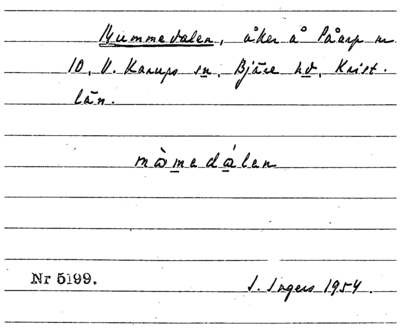 Mummedalen, åker å Påarp nr
10, V. Karups sn, Bjäre hd, Krist.
län.
mòmedálen
Nr 5199.
I. Ingers 1954.